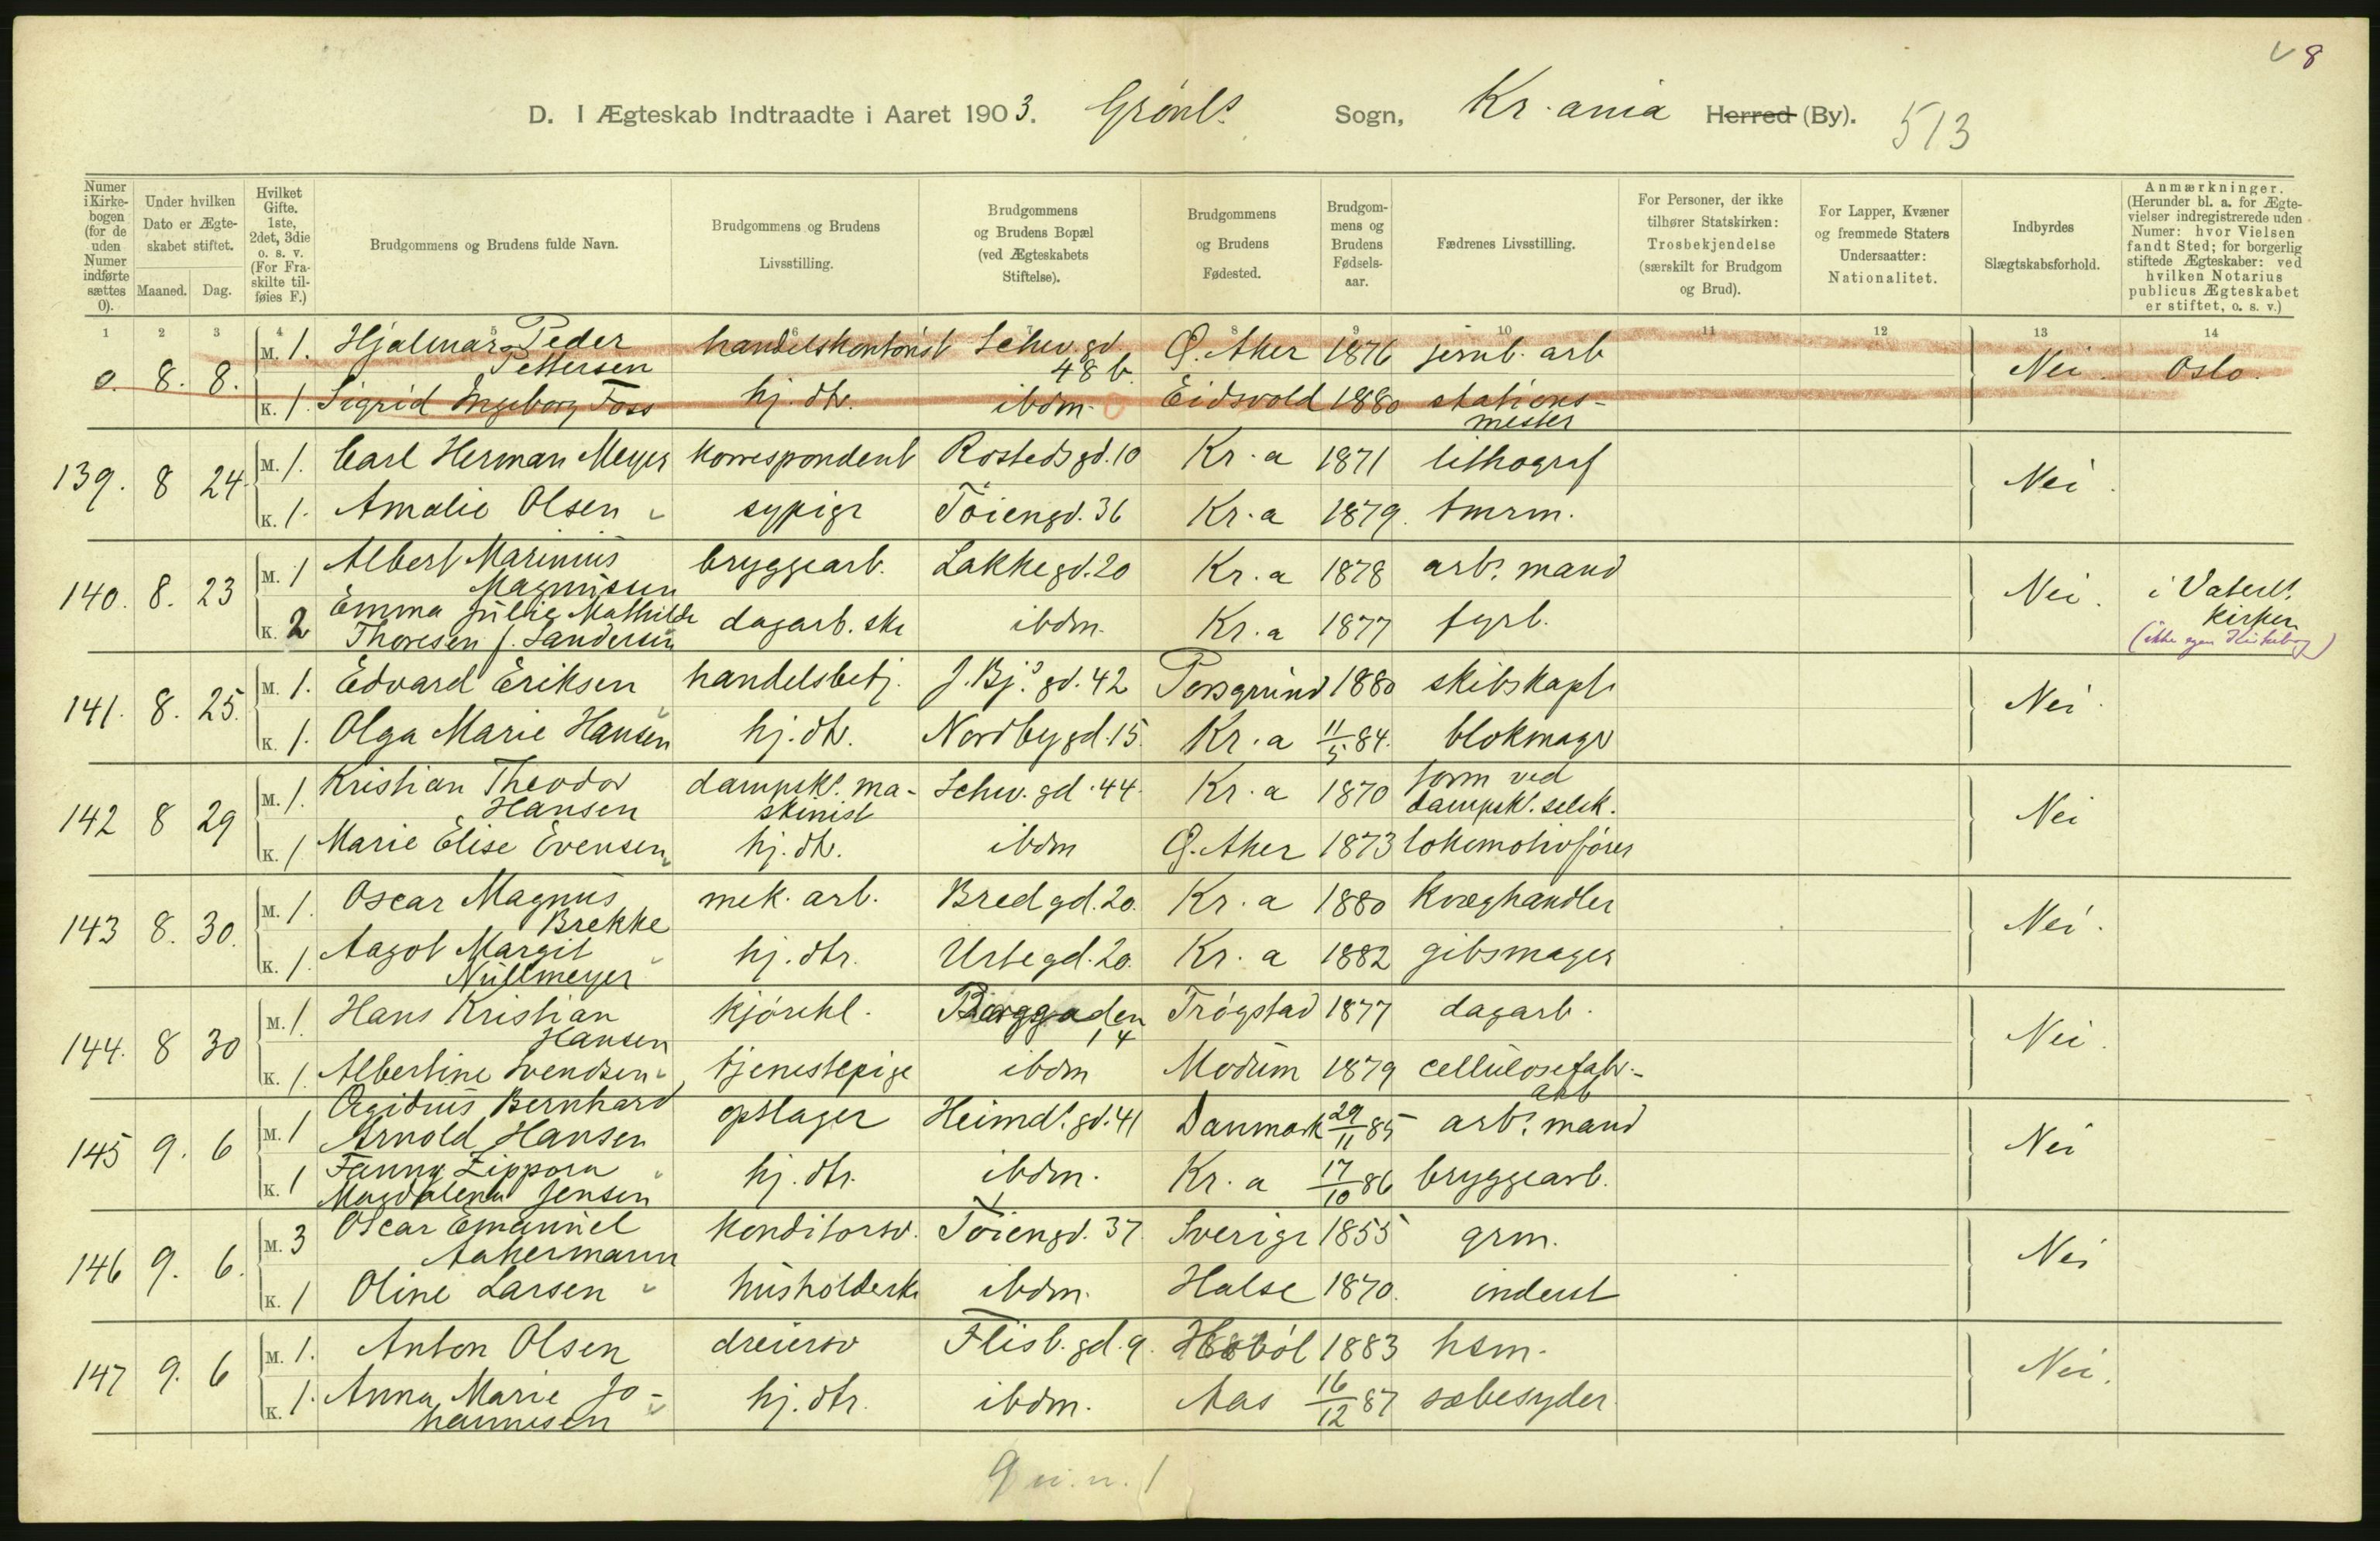 8
D. I Ægteskab Indtraadte i Aaret 1903. Grönls Sogn, Kr.ania Herred (By). 513
Numer i Kirke-bogen (for de uden Numer indførte sættes 0).
Under hvilken Dato er Ægte-skabet stiftet. Maaned. Dag.
Hvilket Gifte. 1ste, 2det, 3die o. s. v. (For Fra-skilte til-føies F.)
Brudgommens og Brudens fulde Navn.
Brudgommens og Brudens Livsstilling.
Brudgommens og Brudens Bopæl (ved Ægteskabets Stiftelse).
Brudgommens og Brudens Fødested.
Brudgom-mens og Brudens Fødsels-aar.
Fædrenes Livsstilling.
For Personer, der ikke tilhører Statskirken: Trosbekjendelse (særskilt for Brudgom og Brud).
For Lapper, Kvæner og fremmede Staters Undersaatter: Nationalitet.
Indbyrdes Slægtskabsforhold.
Anmærkninger. (Herunder bl. a. for Ægte-vielser indregistrerede uden Numer: hvor Vielsen fandt Sted; for borgerlig stiftede Ægteskaber: ved hvilken Notarius publicus Ægteskabet er stiftet, o. s. v.)
1 2 3 4 5 6 7 8 9 10 11 12 13 14
0. 8. 8. M. 1. Hjalmar Peder Pettersen handelskontorist Schw. gd. 48 b. Ö. Aker 1876 jernb. arb Nei. Oslo.
K. 1. Sigrid Ingeborg Foss hj. dtr. ibdm. Eidsvold 1880 stations-mester
139. 8 24. M. 1. Carl Herman Meyer korrespondent Rosteds gd. 10 Kr.a 1871 lithograf Nei.
K. 1. Amalie Olsen sypige Töiengd. 36 Kr.a 1879. tmrm.
140. 8. 23 M. 1 Albert Marinius Magnussen bryggearb. Lakkegd. 20 Kr.a 1878 arb. mand Nei. i Vaterl. kirken
K. 2 Emma Julie Mathilde Thoresen f. Sandersen dagarb. ske ibdm. Kr.a 1877 fyrb. (ikke egen Kirkebog)
141. 8. 25. M. 1. Edvard Eriksen handelsbetj. J. Bj.s gd. 42 Porsgrund 1880 skibskapt. Nei.
K. 1. Olga Marie Hansen hj. dtr. Nordbygd. 15. Kr.a 11/5 84. blokmagr
142 8 29 M. 1. Kristian Theodor Hansen dampsk. ma-skinist Schw. gd. 44. Kr.a 1870 form ved dampsk. selsk. Nei
K. 1 Marie Elise Evensen hj. dtr. ibdm Ö. Aker 1873 lokomotivförer
143 8. 30. M. 1. Oscar Magnus Brekke mek. arb. Bredgd. 20. Kr.a 1880 kvæghandler Nei.
K. 1. Aagot Margit Nüllmeyer hj. dtr. Urtegd. 20. Kr.a 1882 gibsmager
144. 8 30 M. 1. Hans Kristian Hansen kjörekl. Borggaden 14 Trögstad 1877 dagarb. Nei.
K. 1. Albertine Svendsen tjenestepige ibdm Modum 1879 cellulosefabr.-arb
145 9. 6 M. 1 Ægidius Bernhard Arnold Hansen opstager Heimd. gd. 41 Danmark 29/11 85 arb. mand Nei
K. 1 Fanny Zippora Magdalena Jensen hj. dtr. ibdm. Kr.a 17/10 86 bryggearb.
146 9. 6. M. 3 Oscar Emanuel Aakermann konditorsv. Töiengd. 37. Sverige 1855 grm. Nei
K. 1 Oline Larsen husholderske ibdm. Halse 1870. inderst
147 9. 6 M. 1. Anton Olsen dreiersv Flisb. gd. 9. Haaböl 1883 hsm. Nei.
K. 1. Anna Marie Jo-hannesen hj. dtr. ibdm. Aas 16/12 87 sæbesyder